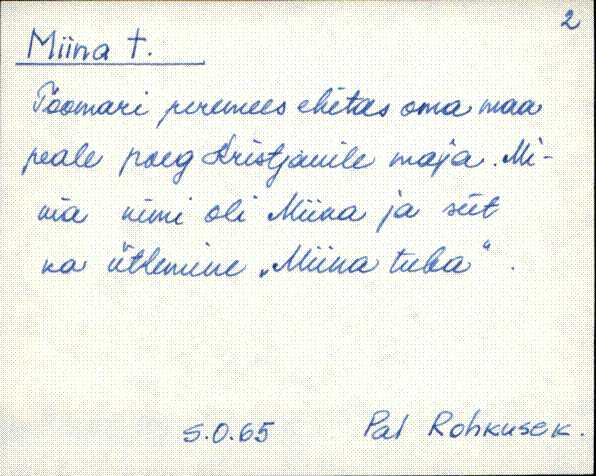 2
Miina t.
Toomari peremees ehitas oma maa
peale poeg Kristjanile maja. Mi-
nia nimi oli Miina ja siit
ka ütlemine „Miina tuba“.
S.O.65 Pal Rohkusek.